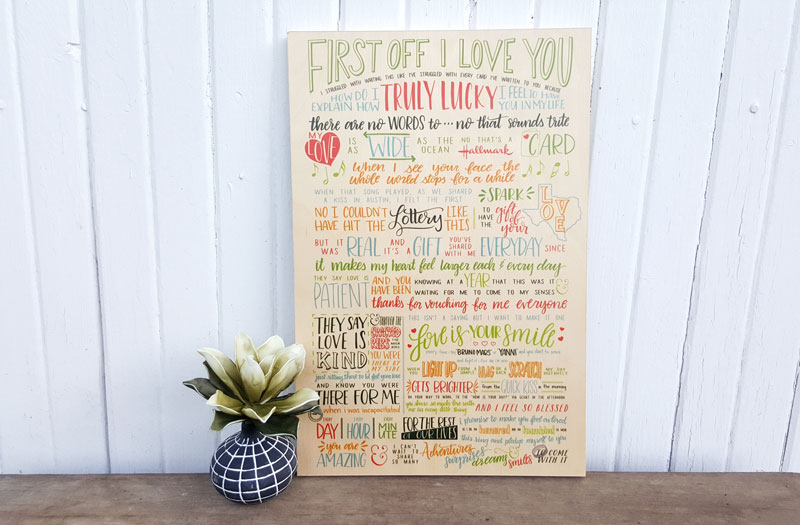 FIRST OFF I LOVE YOU
I STRUGGLED WITH WRITING THIS LIKE I'VE STRUGGLED WITH EVERY CARD I'VE WRITTEN TO YOU BECAUSE
HOW DO I EXPLAIN HOW TRULY LUCKY I FEEL TO HAVE YOU IN MY LIFE
there are no WORDS to... no that sounds trite
MY LOVE IS AS WIDE AS THE OCEAN NO THAT'S A Hallmark CARD
When I see your face the
whole world stops for a while
WHEN THAT SONG PLAYED, AS WE SHARED
A KISS IN AUSTIN, I FELT THE FIRST SPARK
NO I COULDN'T HAVE HIT THE Lottery LIKE THIS
TO HAVE THE gift of your LOVE
BUT IT WAS REAL AND IT'S A GIFT YOU'VE SHARED WITH ME EVERYDAY SINCE
it makes my heart feel larger each & every day
THEY SAY LOVE IS PATIENT AND YOU HAVE BEEN
KNOWING AT A YEAR THAT THIS WAS IT &
WAITING FOR ME TO COME TO MY SENSES
thanks for vouching for me everyone
THEY SAY LOVE IS KIND &
YOU WERE THERE BY MY SIDE
just sitting there to
AND KNOW YOU WERE
THERE FOR ME
when I was incapacitated
THIS ISN'T A SAYING BUT I WANT TO MAKE IT ONE
Love is YOUR Smile
BRUNO MARS YANNI
WHEN YOU LIGHT UP FROM A HUG OR A SCRATCH
GETS BRIGHTER from the QUICK KISS in the morning
ON YOUR WAY TO WORK, TO THE "HOW IS YOUR DAY?" IN THE AFTERNOON
AND I FEEL SO BLESSED
EVERY DAY EVERY HOUR EVERY MINUTE
FOR THE REST OF OUR LIVES
I promise to make you feel as loved
this ring must pledge myself to you
you are AMAZING & I CAN'T WAIT TO SHARE SO MANY
Adventures surprises dreams & smiles
COME WITH IT